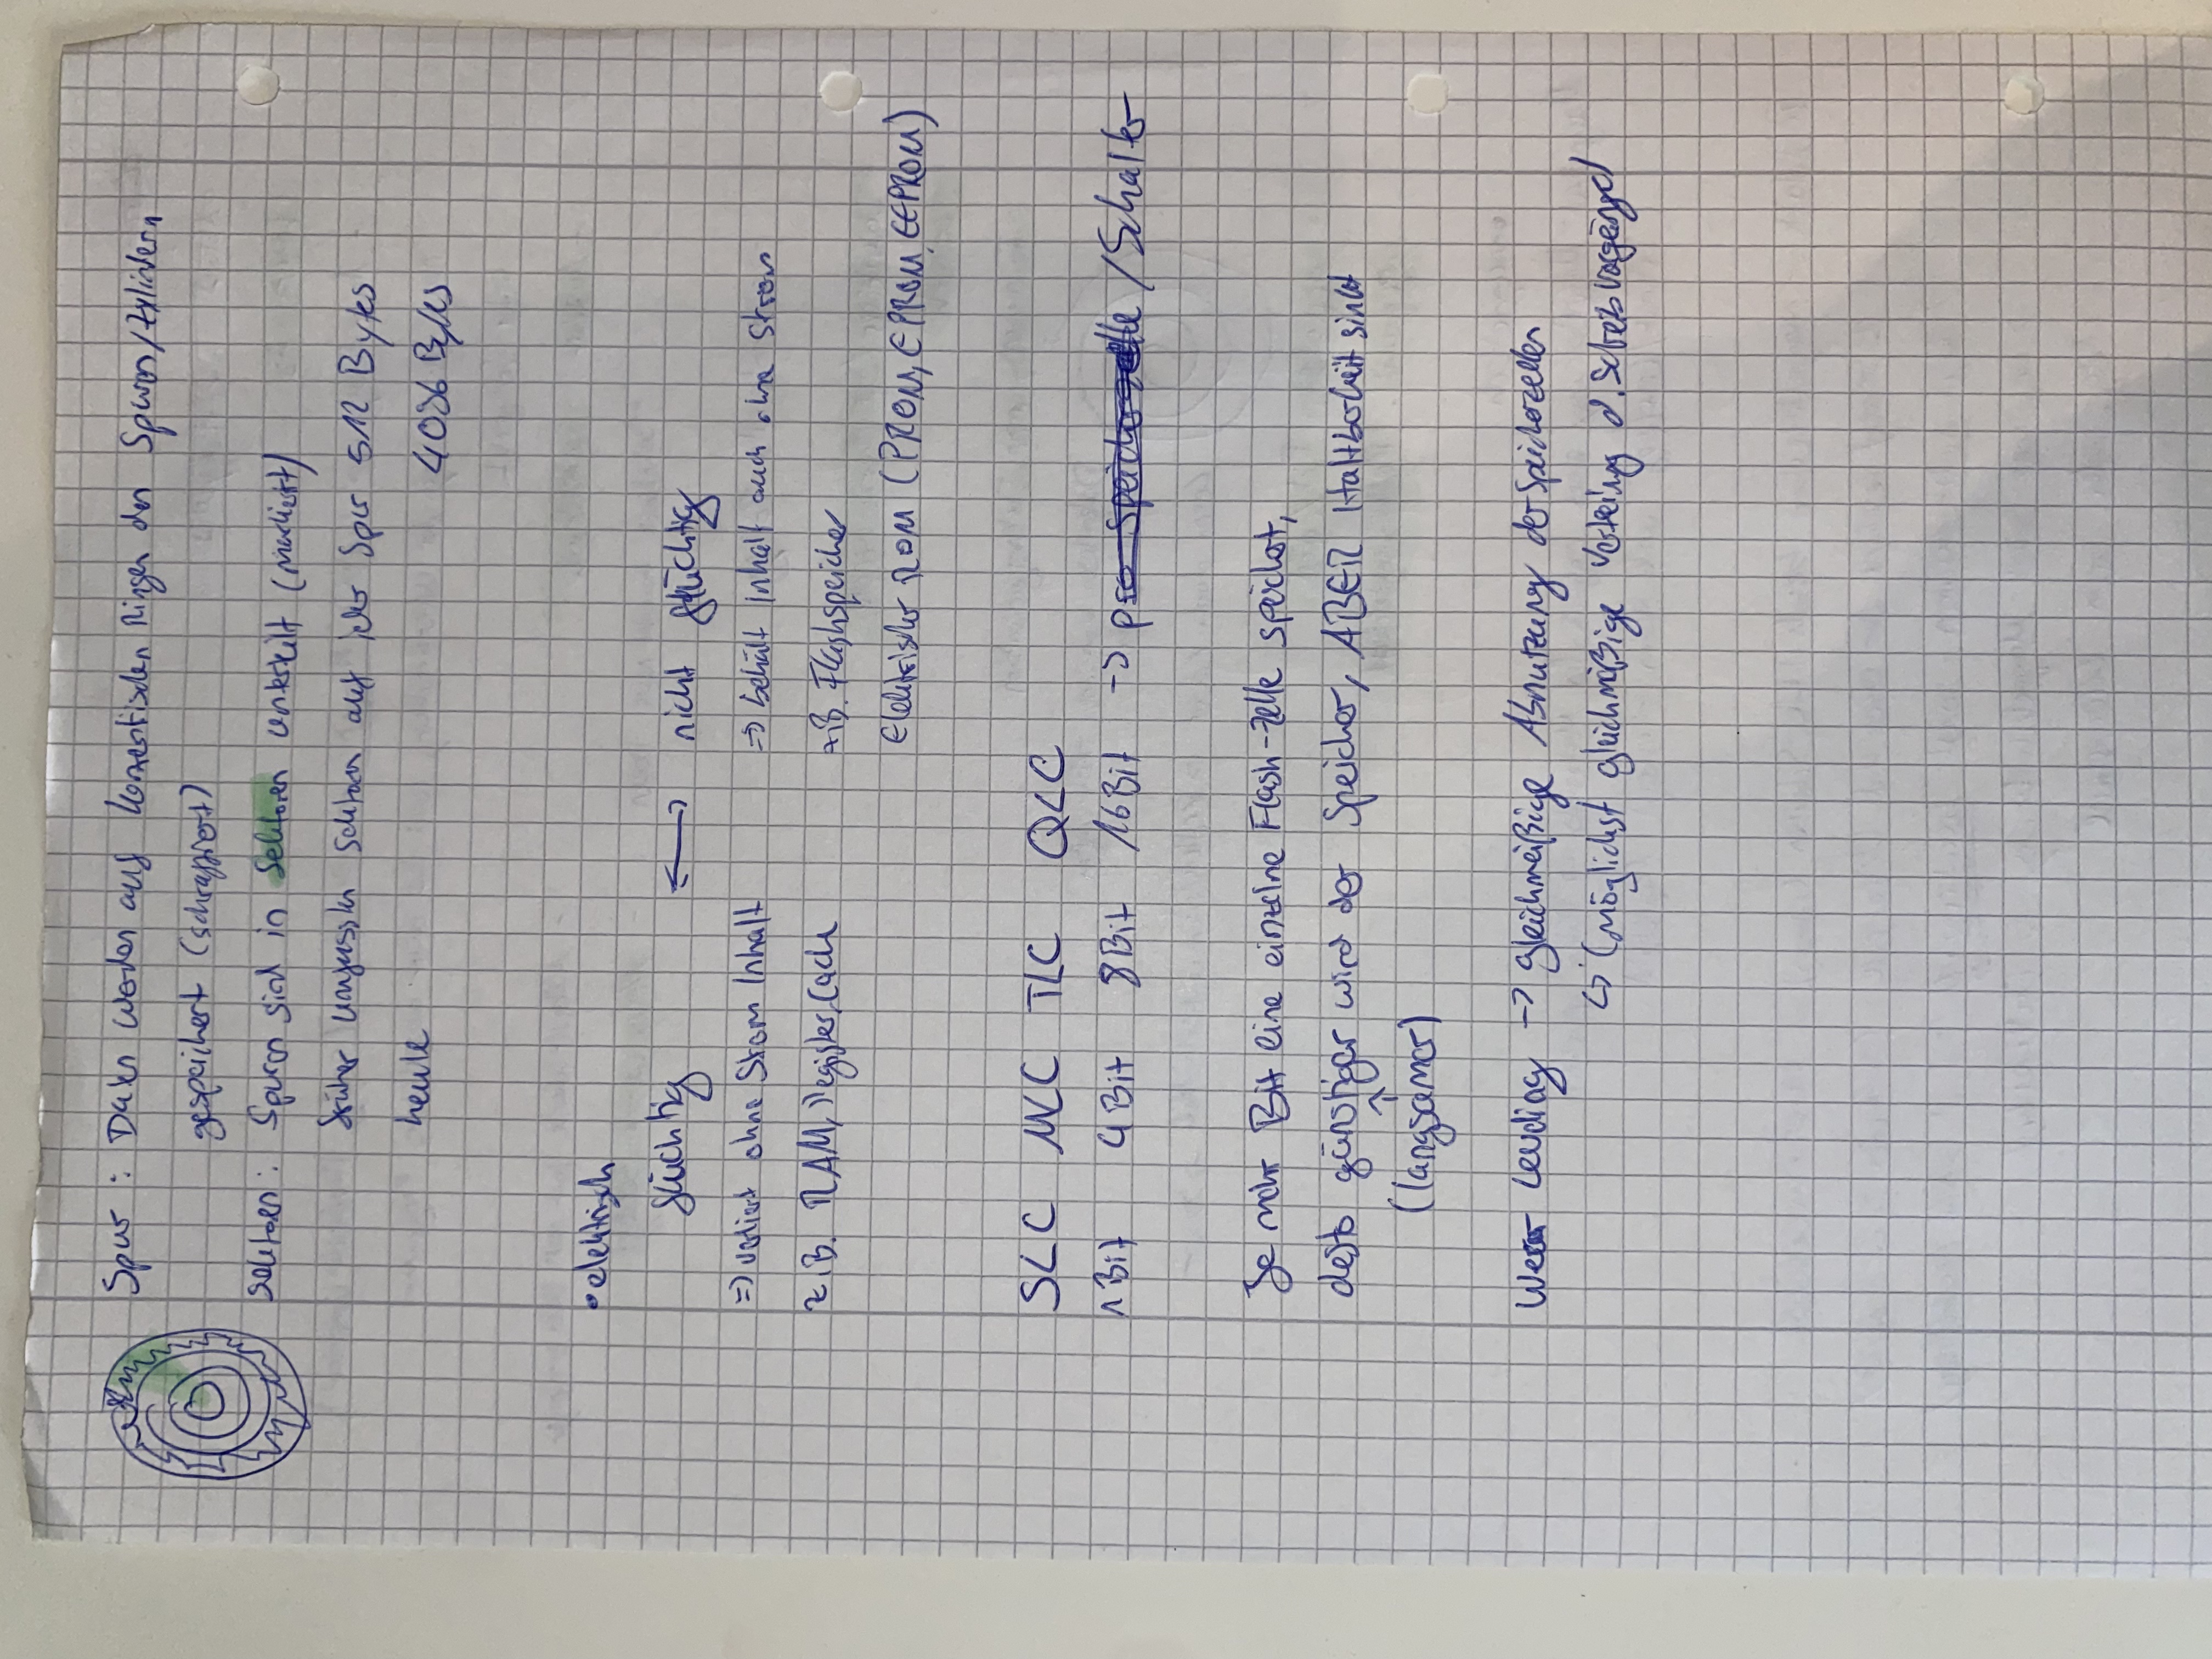 Spur: Daten werden auf konzentrischen Ringen den Spuren/Zylindern
gespeichert
Sektoren: Spuren sind in Sektoren unterteilt (markiert)
früher umfassten Sektoren auf jeder Spur 512 Bytes
heute 4096 Bytes
• elektrisch
flüchtig <—> nicht flüchtig
=> verliert ohne Strom Inhalt => behält Inhalt auch ohne Strom
z.B. RAM, Register, Cache z.B. Flashspeicher
Elektrischer ROM (PROM, EPROM, EEPROM)
SLC MLC TLC QLC
1Bit 4Bit 8Bit 16Bit -> pro Speicherzelle / Schalter
Je mehr Bit eine einzelne Flash-Zelle speichert,
desto günstiger wird der Speicher, ABER Haltbarkeit sinkt
(langsamer)
Wear Leveling -> gleichmäßige Abnutzung der Speicherzellen
↳ (möglichst gleichmäßige Verteilung d. Schreibvorgänge)